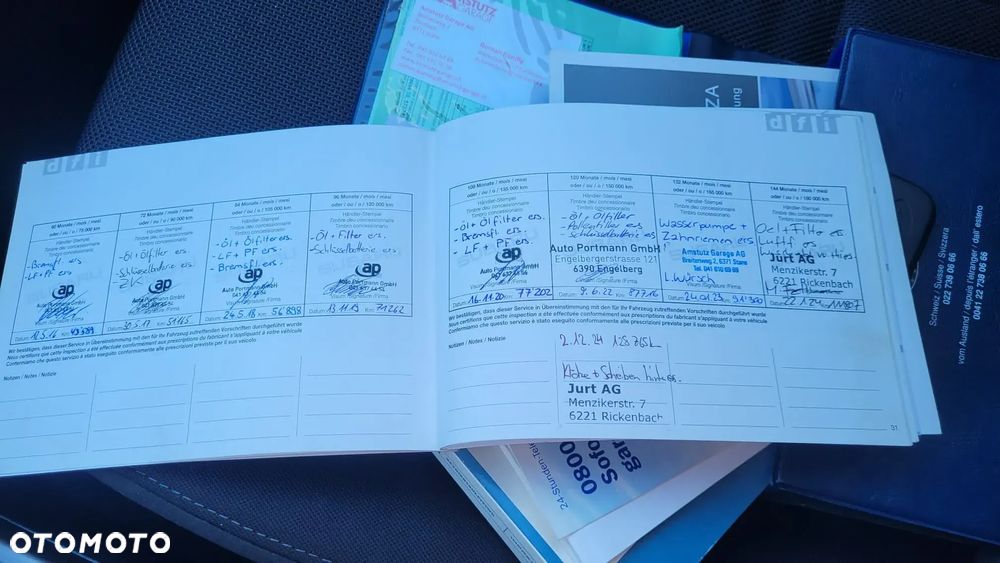 AMSTUTZ
GARAGE
Amstutz Garage AG
ZA
dfi
dfi
60 Monate / mois / mesi
oder / ou / o / 75 000 km
Händler-Stempel
Timbre du concessionnaire
Timbro concessionario
- Bremsfl. ers
- LF + PF ers.
ap
Auto Portmann GmbH
Visum/Signature/Firma
72 Monate / mois / mesi
oder / ou / o / 90 000 km
Händler-Stempel
Timbre du concessionnaire
Timbro concessionario
- Öl + Ölfilter ers.
- Schlüsselbatterie ers.
- ZK
ap
Auto Portmann GmbH
Visum/Signature/Firma
84 Monate / mois / mesi
oder / ou / o / 105 000 km
Händler-Stempel
Timbre du concessionnaire
Timbro concessionario
- Öl + Ölfilter ers.
- LF + PF ers.
- Bremsfl. ers.
ap
Auto Portmann GmbH
041 637 44 54
Visum/Signature/Firma
Datum 24.5.18 Km 54'898
96 Monate / mois / mesi
oder / ou / o / 120 000 km
Händler-Stempel
Timbre du concessionnaire
Timbro concessionario
- Öl + Filter ers.
- Schlüsselbatterie ers.
ap
Auto Portmann GmbH
041 637 44 54
Visum/Signature/Firma
Datum 13.11.19 Km 71262
Wir bestätigen, dass dieser Service in Übereinstimmung mit den für Ihr Fahrzeug zutreffenden Vorschriften durchgeführt wurde
Nous certifions que cette inspection a été effectuée conformément aux prescriptions du fabricant s'appliquant à votre véhicule
Confermiamo che questo servizio è stato eseguito conformemente alle prescrizioni previste per il suo veicolo.
Notizen / Notes / Notizie
108 Monate / mois / mesi
oder / ou / o / 135 000 km
Händler-Stempel
Timbre du concessionnaire
Timbro concessionario
- Öl + Ölfilter ers.
- Bremsfl. ers.
- LF + PF ers.
ap
Auto Portmann GmbH
Visum/Signature/Firma
Datum 16.11.20 Km 77202
120 Monate / mois / mesi
oder / ou / o / 150 000 km
Händler-Stempel
Timbre du concessionnaire
Timbro concessionario
- Öl + Ölfilter
- Pollenfilter ers
- Schlüsselbatterie ers
Auto Portmann GmbH
Engelbergerstrasse 121
6390 Engelberg
Visum/Signature/Firma
Datum 9.6.22 Km 87716
132 Monate / mois / mesi
oder / ou / o / 165 000 km
Händler-Stempel
Timbre du concessionnaire
Timbro concessionario
Wasserpumpe +
Zahnriemen ers
Amstutz Garage AG
Breitenweg 2, 6371 Stans
Tel. 041 610 69 69
L. Wirsch
Visum/Signature/Firma
Datum 24.01.23 Km 91'300
144 Monate / mois / mesi
oder / ou / o / 180 000 km
Händler-Stempel
Timbre du concessionnaire
Timbro concessionario
Oel + Filter ers
Luftf ers
Jurt AG
Menzikerstr. 7
6221 Rickenbach
Wir bestätigen, dass dieser Service in Übereinstimmung mit den für Ihr Fahrzeug zutreffenden Vorschriften durchgeführt wurde
Nous certifions que cette inspection a été effectuée conformément aux prescriptions du fabricant s'appliquant à votre véhicule
Confermiamo che questo servizio è stato eseguito conformemente alle prescrizioni previste per il suo veicolo.
Notizen / Notes / Notizie
2.12.24
Klötze + Scheiben hinten ers.
Jurt AG
Menzikerstr. 7
6221 Rickenbach
31
24-Stunden-Tele
0800
Sofo
gar
Schweiz / Suisse / Svizzera
022 738 06 66
vom Ausland / depuis l'étranger / dall' estero
0041 22 738 06 66
OTOMOTO